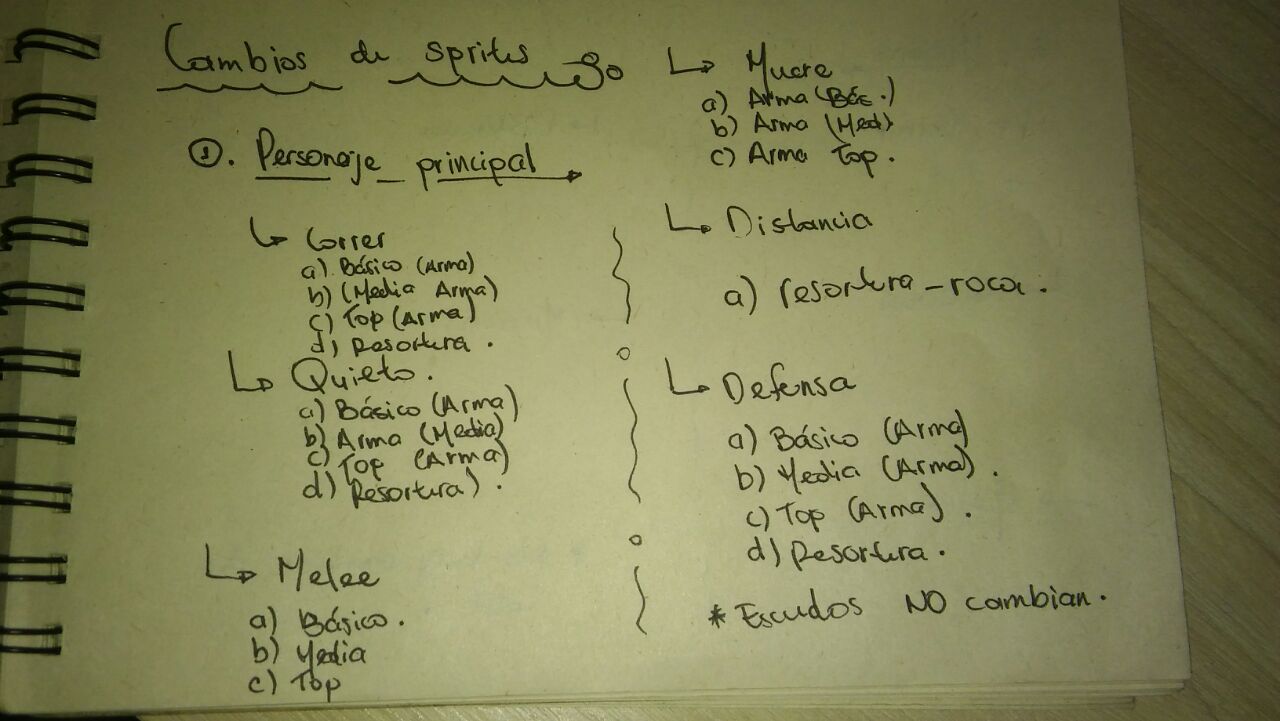 Cambios de sprites
①. Personaje principal
Correr
a) Básico (Arma)
b) (Media Arma)
c) Top (Arma)
d) Resortera.
Quieto.
a) Básico (Arma)
b) Arma (Media)
c) Top (Arma)
d) Resortera).
Melee
a) Básico.
b) Media
c) Top
Muere
a) Arma (Bás.)
b) Arma (Med)
c) Arma Top.
Distancia
a) resortera-roca.
Defensa
a) Básico (Arma)
b) Media (Arma).
c) Top (Arma).
d) Resortera.
* Escudos NO cambian.